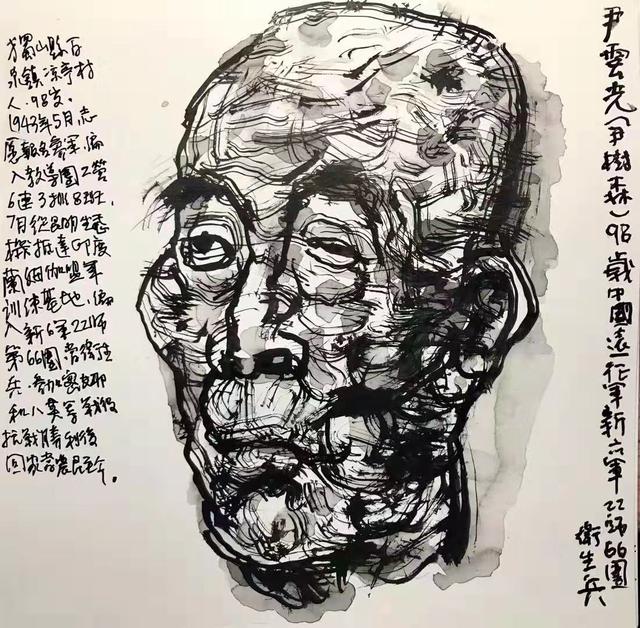 尹雲光(尹樹森)98歲中國遠征軍新六軍22师66團
衛生兵
岁蜀山縣百
泉鎮凉亭村
人.98岁.
1943年5月志
愿報名參军.編
入教導團2營
6連3排8班,
7月從昆明
抵達印度
蘭姆伽盟军
訓練基地.編
入新6军22师
第66團當衛生
兵.參加
和八莫等戰役
抗戰勝利後
回家務農至今.